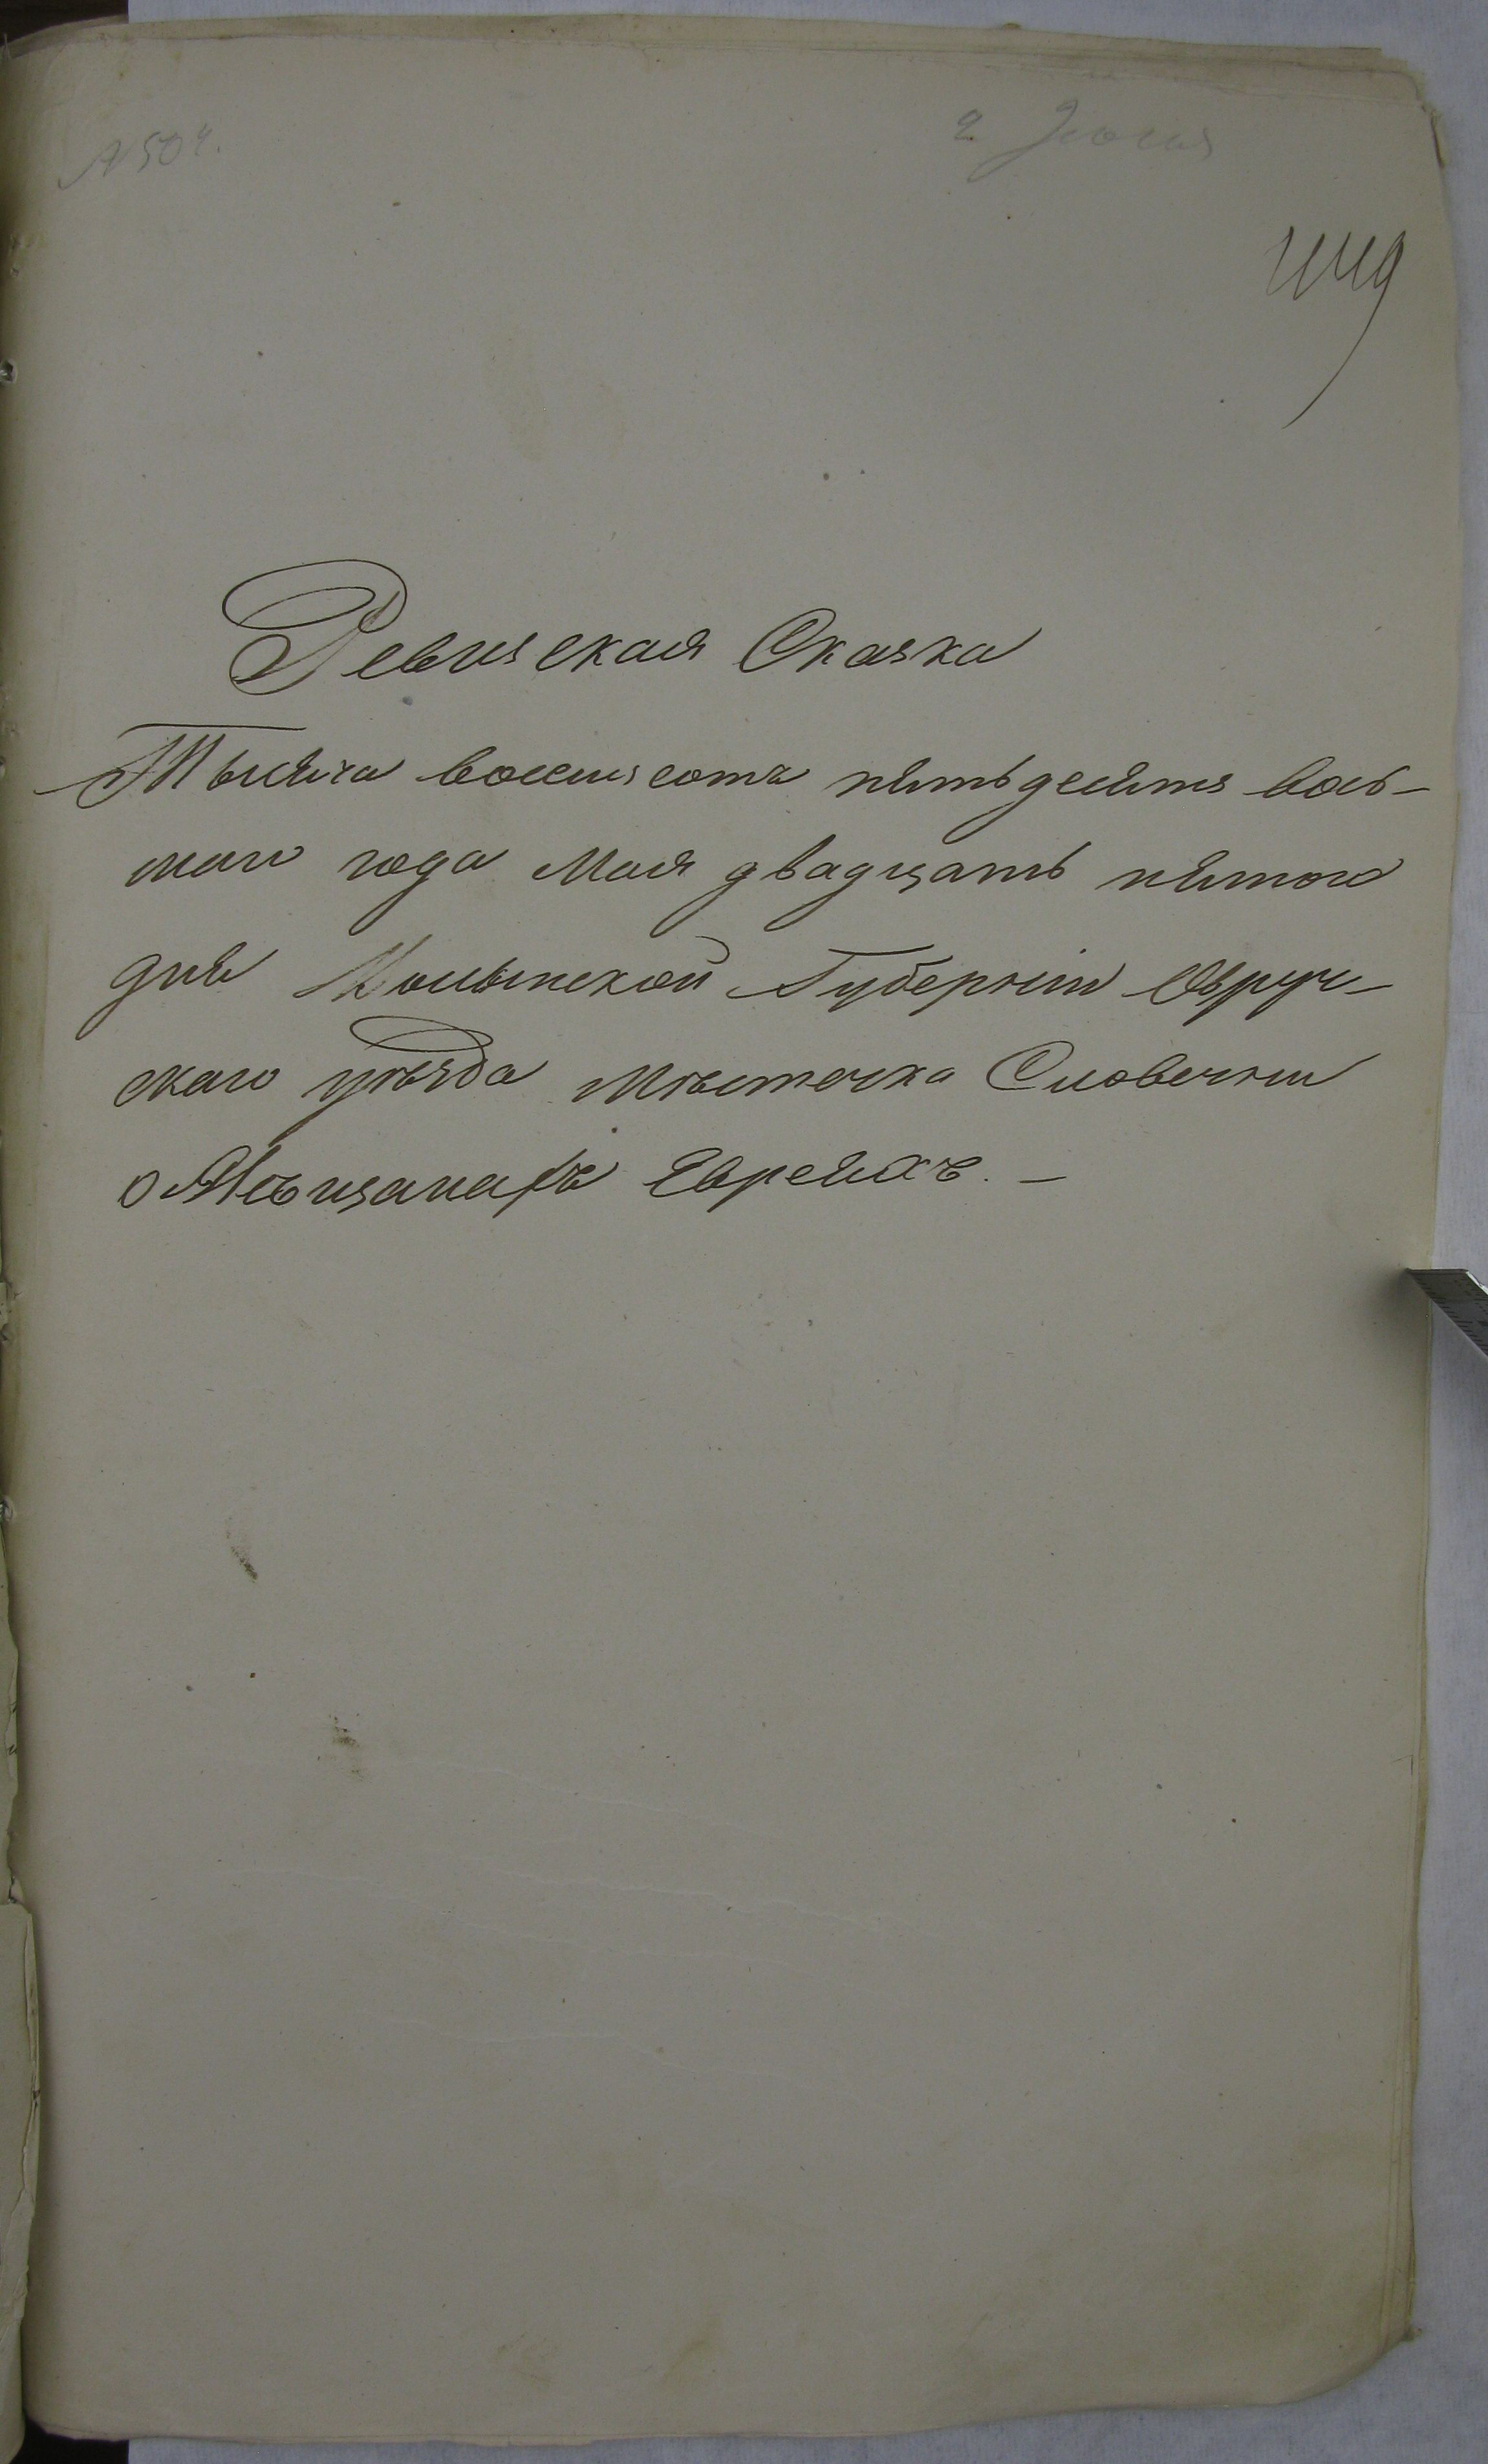 № 504.
2 Іюня
Ревизская Сказка
Тысяча восемьсотъ пятьдесятъ вось-
маго года Мая двадцать пятого
дня Волынской Губерніи Овруч-
скаго уѣзда мѣстечка Словечны
о Мѣщанахъ Евреяхъ. —